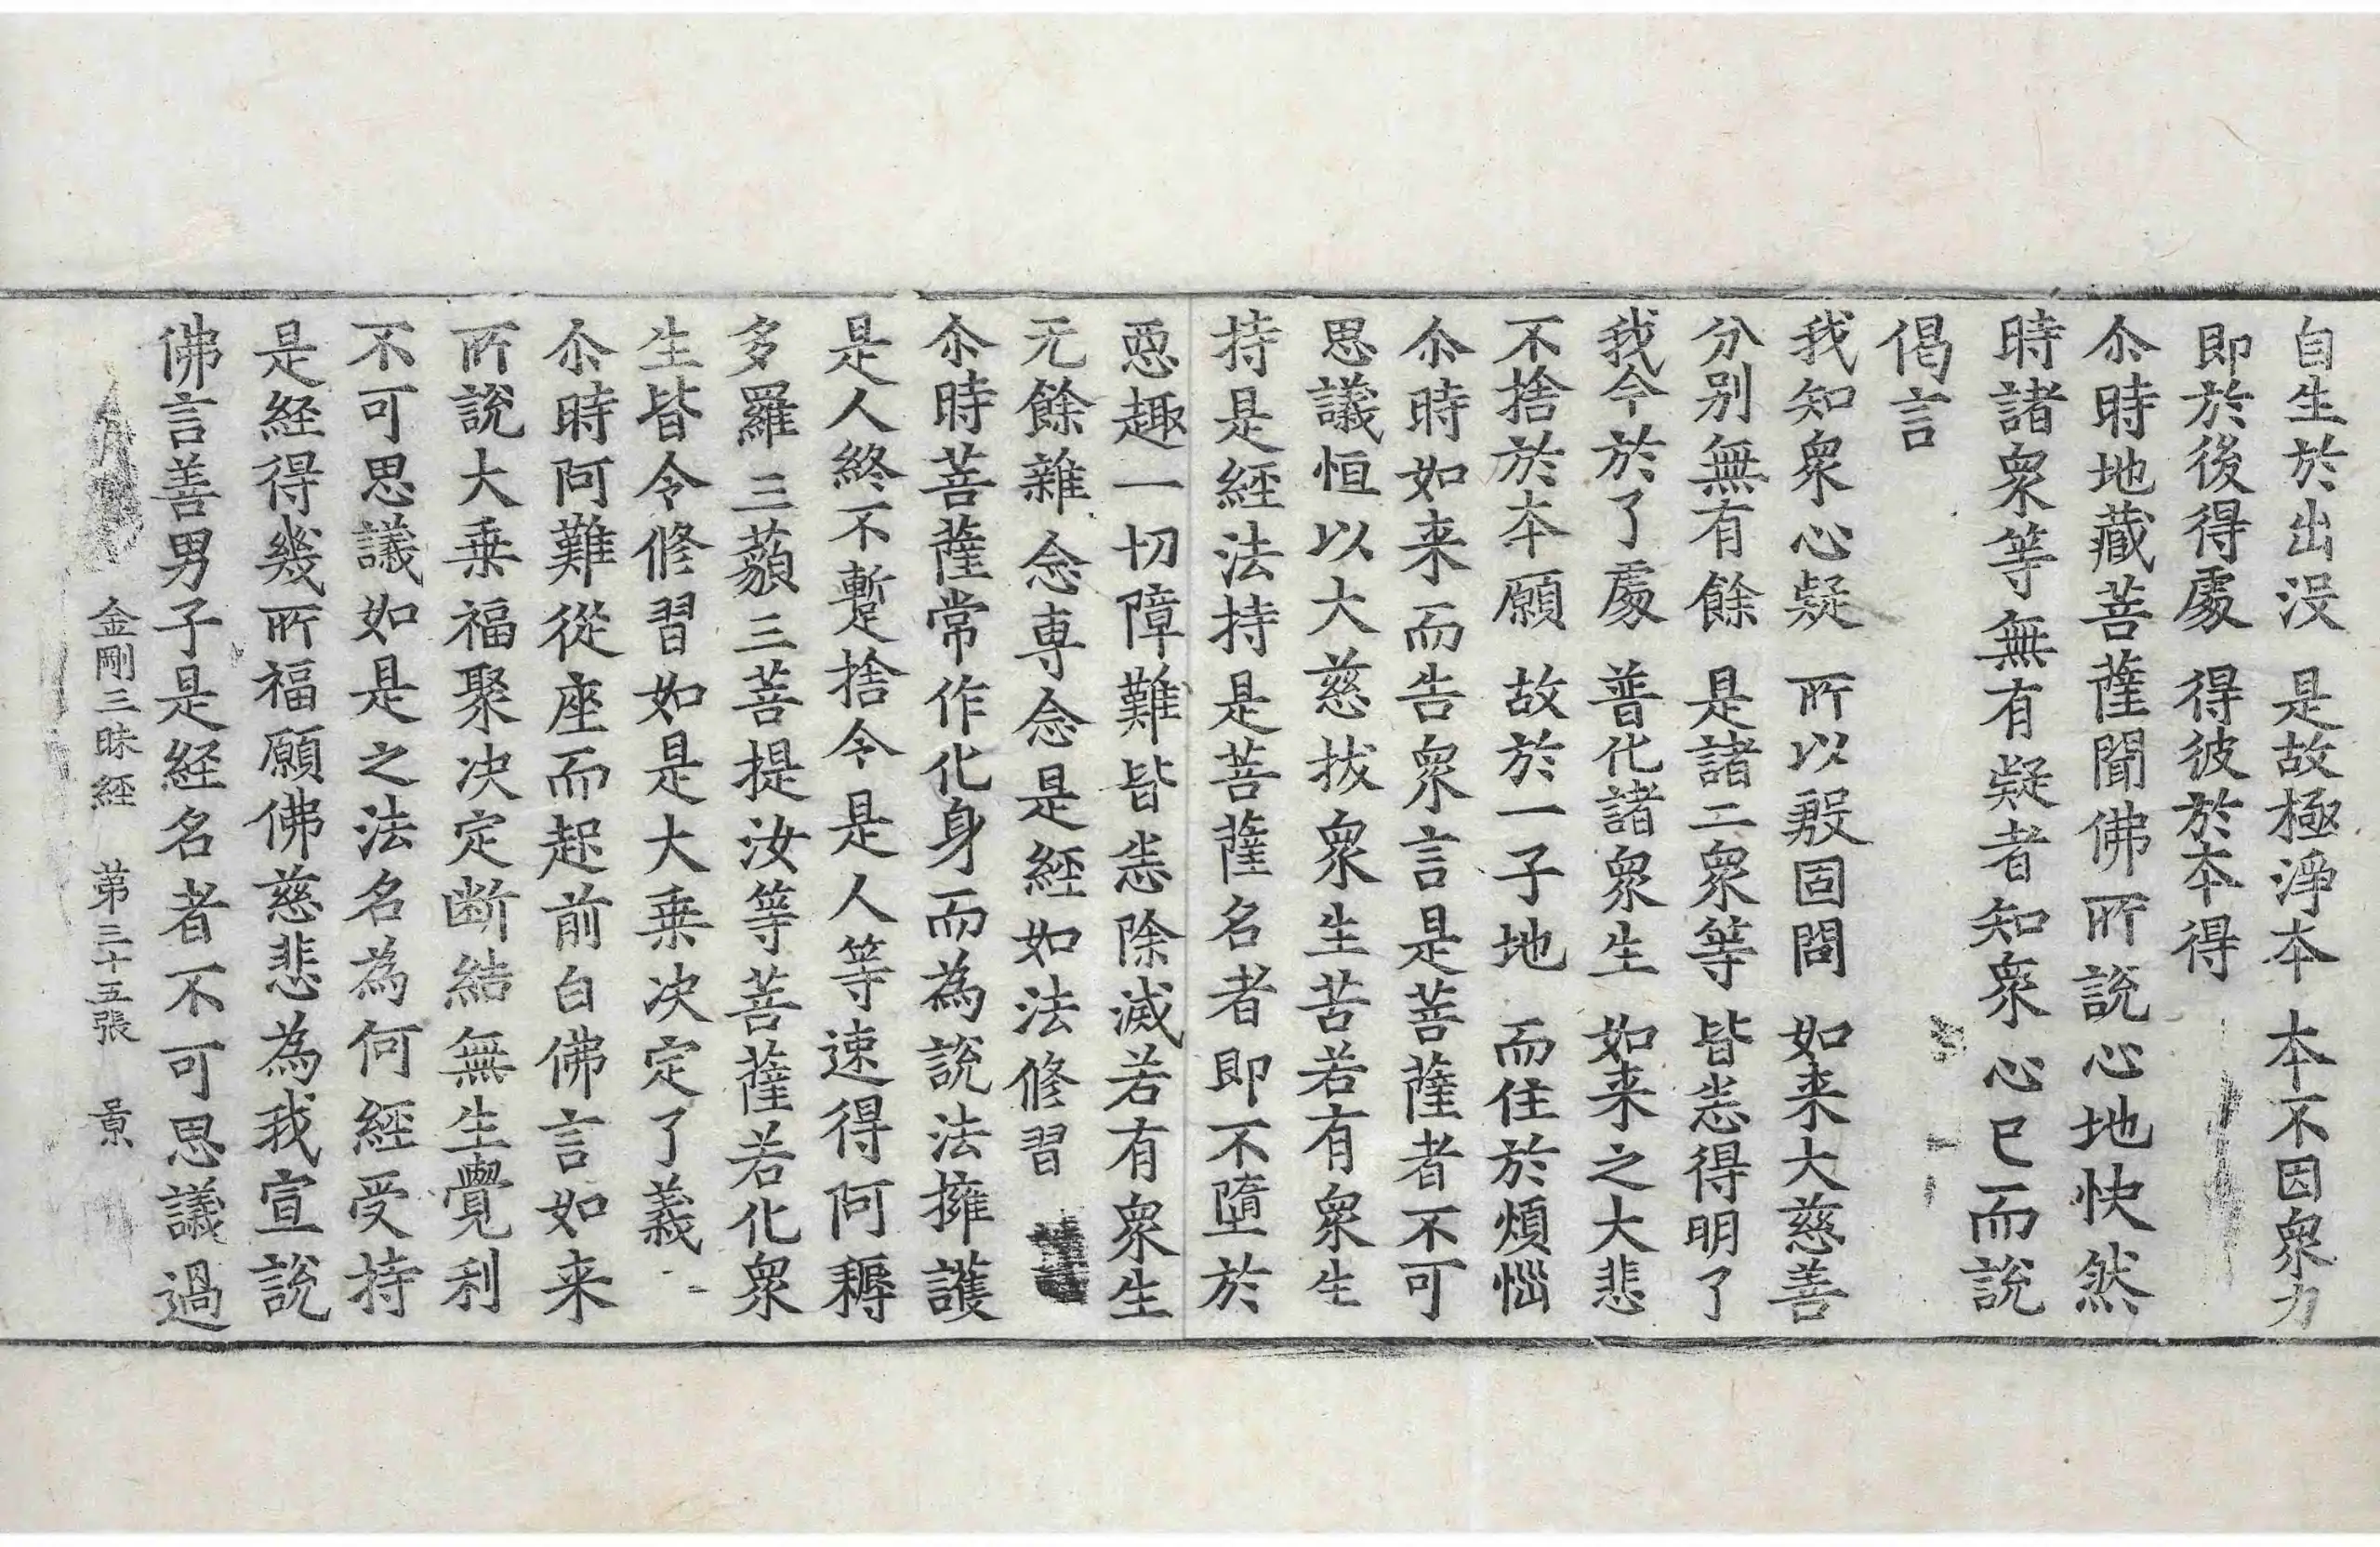 自生於出没　是故極淨本　本不因衆力
即於後得處　得彼於夲得
尒時地藏菩薩聞佛所說心地快然
時諸衆等無有疑者知衆心已而說
偈言
我知衆心疑　所以殷固問　如来大慈善
分别無有餘　是諸二衆等　皆悉得明了
我今於了處　普化諸衆生　如来之大悲
不捨於夲願　故於一子地　而住於煩惱
尒時如来而告衆言是菩薩者不可
思議恒以大慈拔衆生苦若有衆生
持是經法持是菩薩名者即不墮於
惡趣一切障難皆悉除滅若有衆生
无餘雜念専念是經如法修習
尒時菩薩常作化身而為說法擁護
是人終不蹔捨令是人等速得阿耨
多羅三藐三菩提汝等菩薩若化衆
生皆令修習如是大乗决定了義
尒時阿難從座而起前白佛言如来
所說大乗福聚决定断結無生覺利
不可思議如是之法名為何經受持
是經得幾所福願佛慈悲為我宣說
佛言善男子是経名者不可思議過
金剛三昧經　第三十五張　景